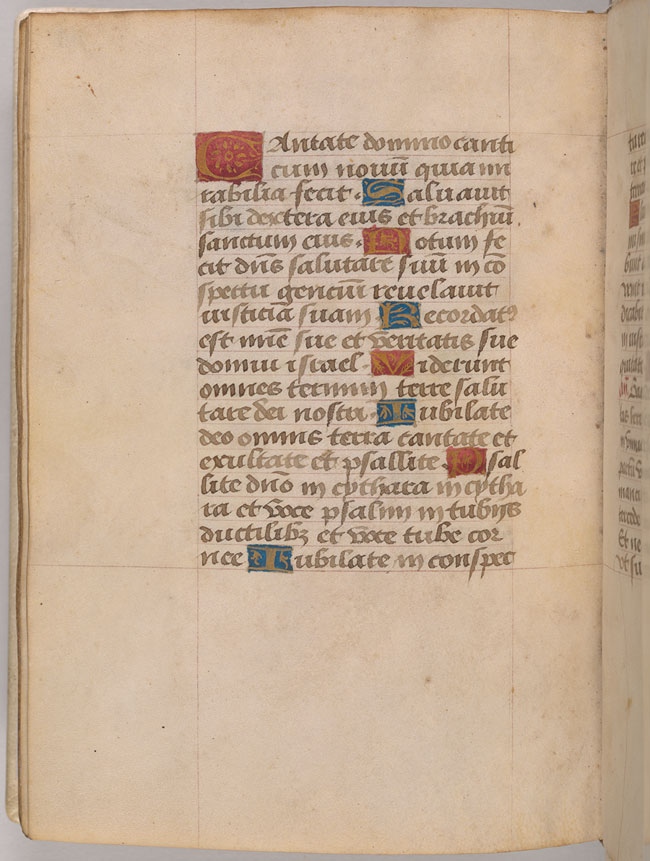 Cantate domino canti
cum nouū quia mi
rabilia fecit. Saluauit
sibi dextera eius et brachiū
sanctum eius. Notum fe
cit dn̄s salutare suū in cō
spectu genciū reuelauit
iusticiā suam. Recordatꝰ
est mīe sue et veritatis sue
domui israel. Viderunt
omnes termini terre salu
tare dei nostri. Iubilate
deo omnis terra cantate et
exultate et psallite. Psal
lite dn̄o in cythara in cytha
ra et voce psalmi in tubijs
ductilibꝫ et voce tube cor
nee Iubilate in conspec